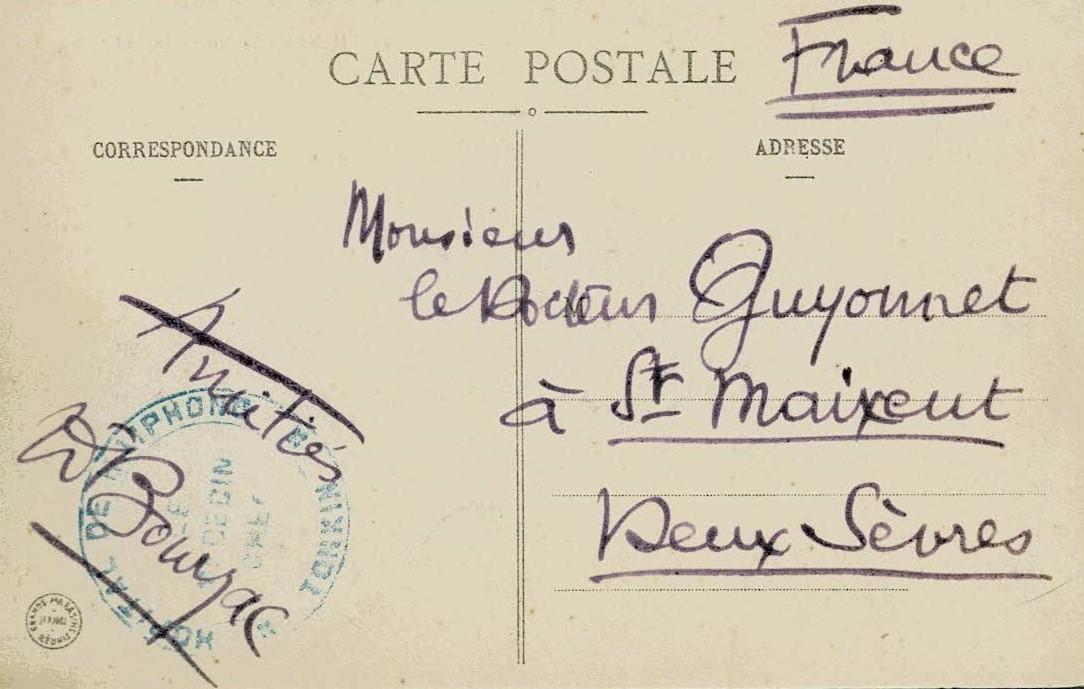 CARTE POSTALE
France
CORRESPONDANCE
ADRESSE
Monsieur
le Docteur Guyonnet
M
à St Maixent
Deux Sèvres
Amitiés
Dr Bourgac
HOPITAL DE HAIPHONG
TONKIN
LE
MEDECIN
CHEF
GRANDS MAGASINS